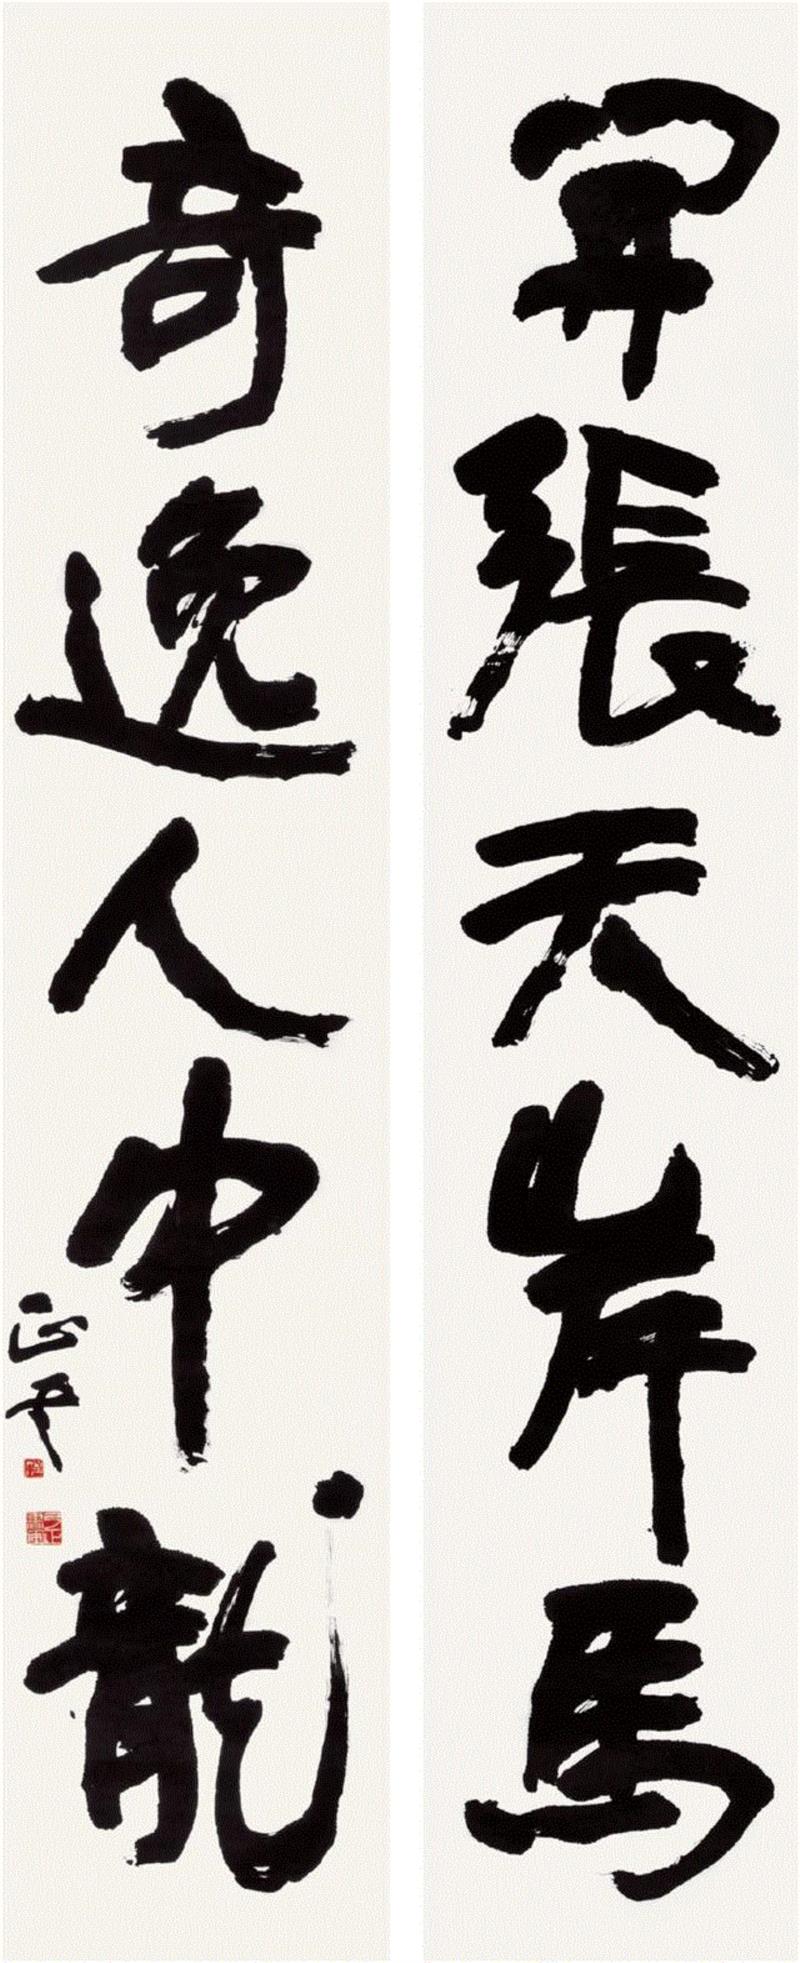 開張天岸馬
奇逸人中龍
正雲